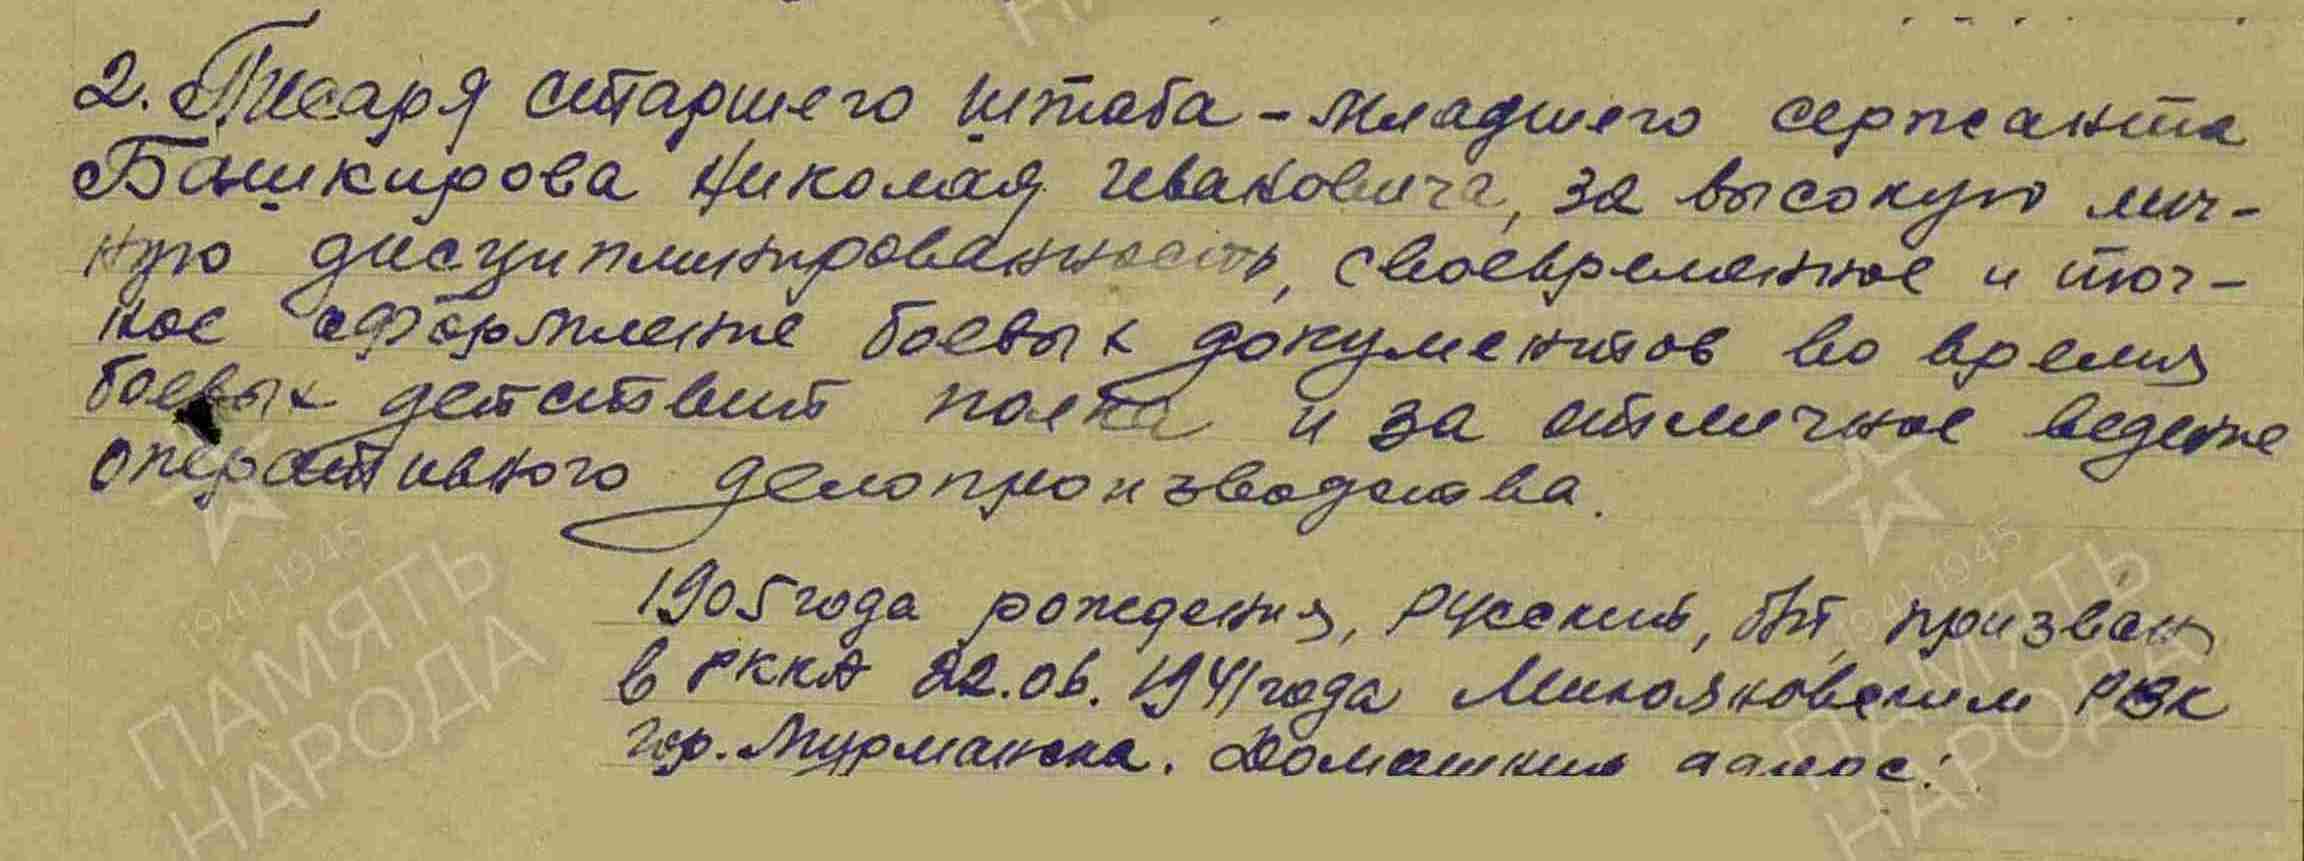 2. Писаря старшего штаба - младшего сержанта
Башкирова Николая Ивановича, за высокую лич-
ную дисциплинированность, своевременное и точ-
ное оформление боевых документов во время
боевых действий полка и за отличное ведение
оперативного делопроизводства.
1905 года рождения, русский, б/п, призван
в РККА 22.06.1941 года Микояновским РВК
гор. Мурманска. Домашний адрес:
1941-1945
ПАМЯТЬ
НАРОДА
1941-1945
ПАМЯТЬ
НАРОДА